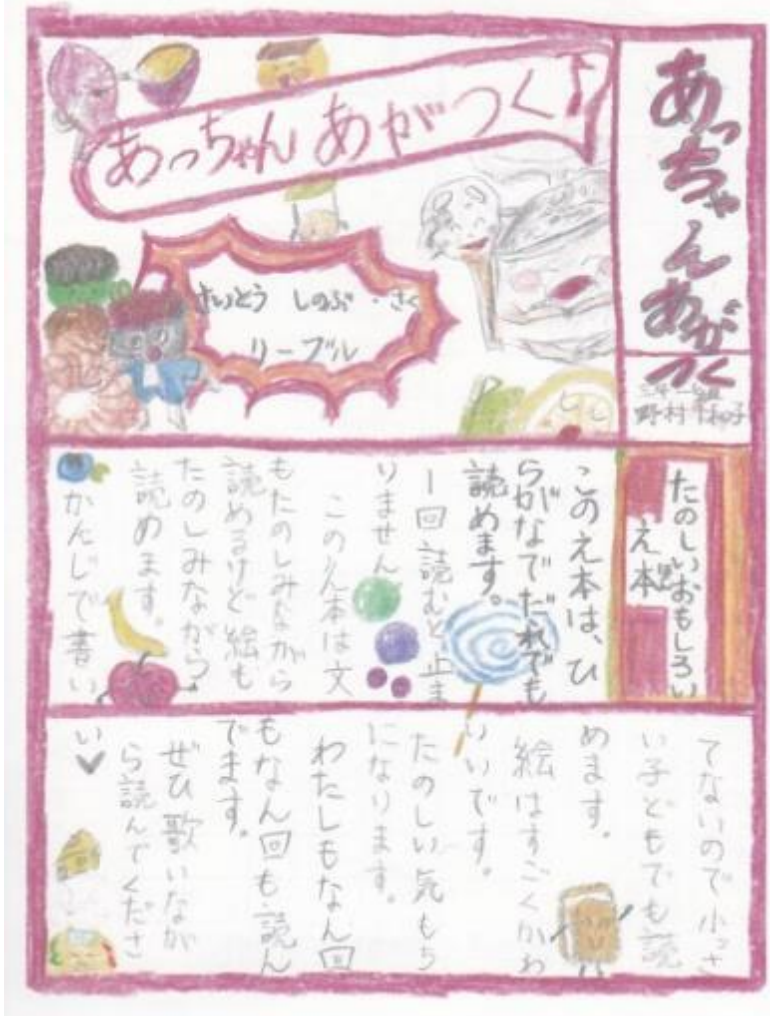 あっちゃんあがつく
三年一組
野村
あっちゃん あがつく♪
さいとう しのぶ・さく
リーブル
たのしいおもしろい
え本!!
この え本は、ひ
らがなでだれでも
読めます。
1回読むと止ま
りません
このえ本は文
もたのしみながら
読めるけど絵も
たのしみながら
読めます。
かんじで書い
てないので小さ
い子どもでも読
めます。
絵はすごくかわ
いいです。
たのしい気もち
になります。
わたしもなん回
もなん回も読ん
でます。
ぜひ歌いなが
ら読んでくださ
い♥